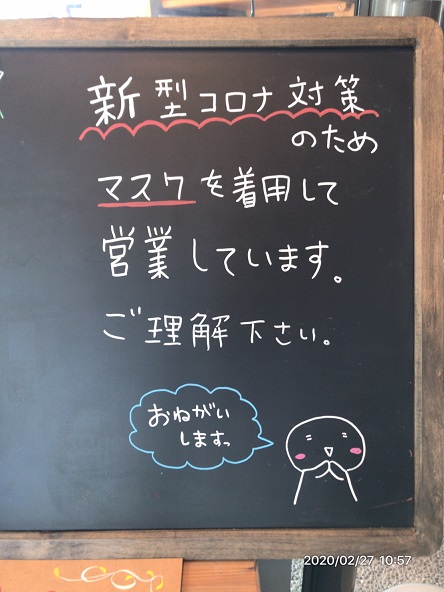 新型コロナ対策
のため
マスクを着用して
営業しています。
ご理解下さい。
おねがい
しますっ
2020/02/27 10:57